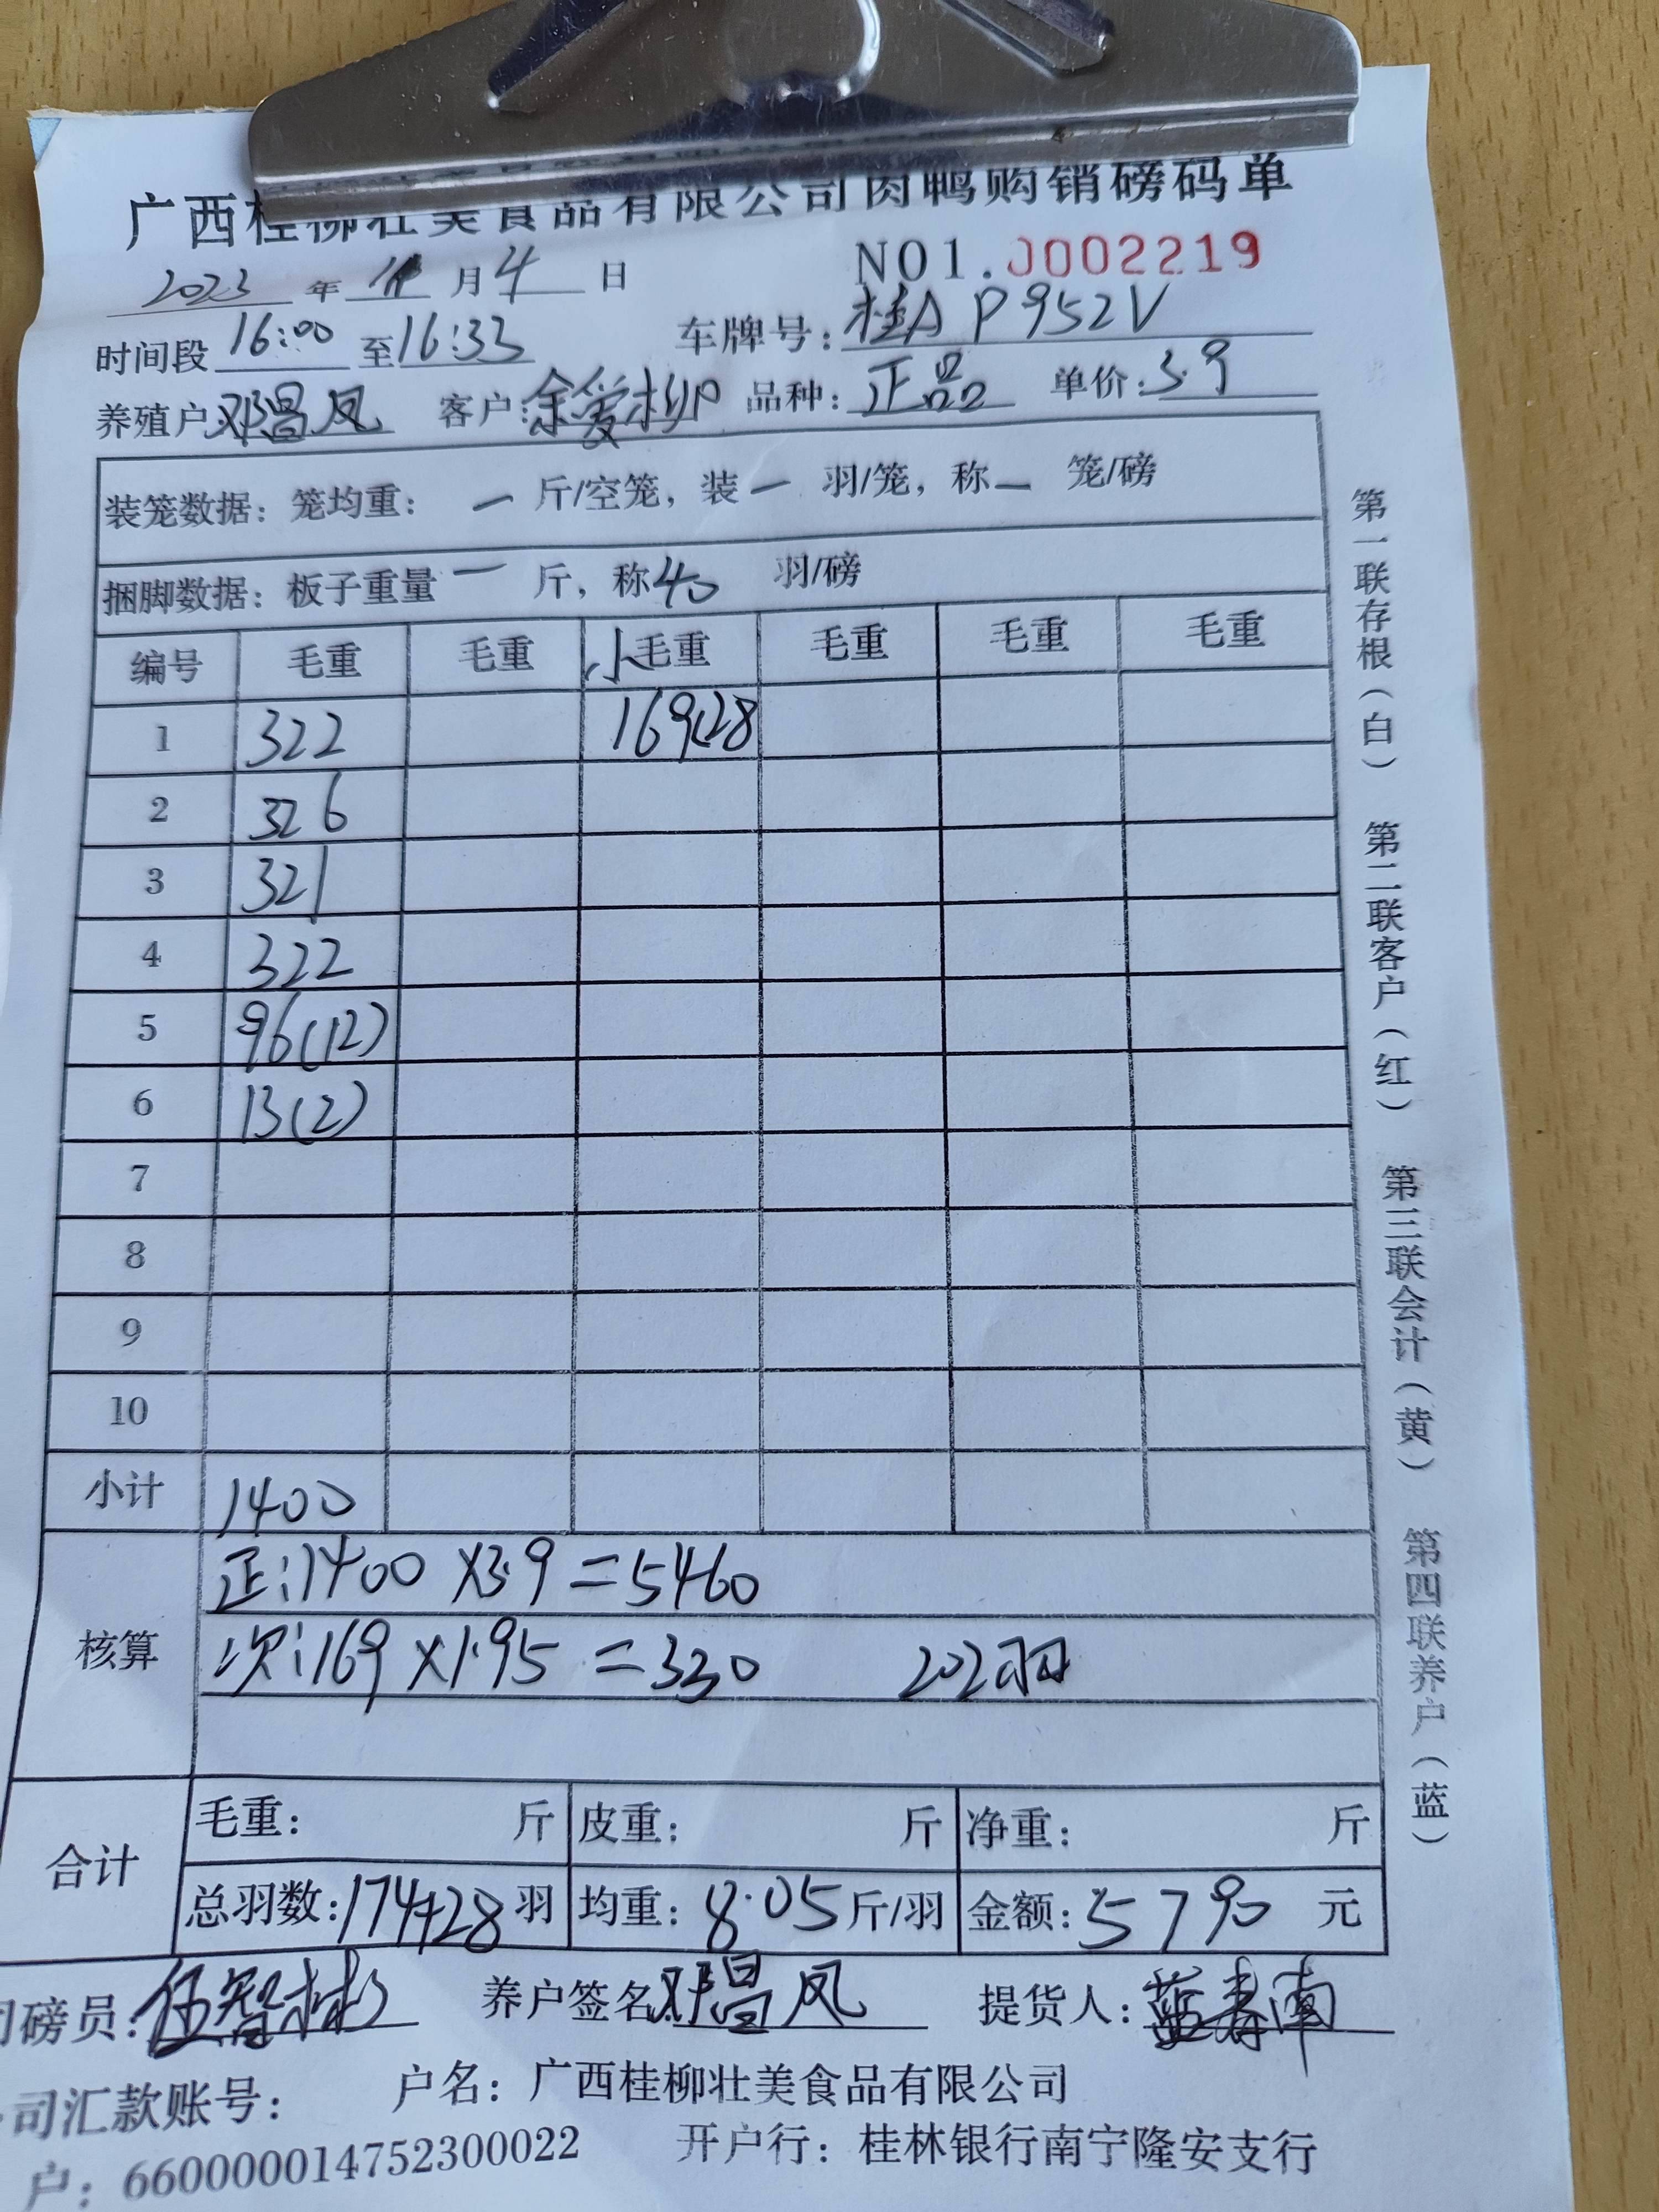 广西桂柳壮美食品有限公司肉鸭购销磅码单
2023 年 月 4 日 NO1.0002219
时间段 16:00 至 16:33 车牌号: 桂A P952V
养殖户: 邓昌凤 客户: 余爱柳 品种: 正品 单价: 3.9
装笼数据: 笼均重: 一 斤/空笼, 装 一 羽/笼, 称 一 笼/磅
捆脚数据: 板子重量 一 斤, 称 40 羽/磅
编号 毛重 毛重 小毛重 毛重 毛重 毛重
1 322 169(28
2 326
3 321
4 322
5 96(12)
6 13(2)
7
8
9
10
小计 1400
核算 正:1400 X3.9 =5460
次:169 X1.95 =330 202羽
合计 毛重: 斤 皮重: 斤 净重: 斤
总羽数: 174+28 羽 均重: 8.05 斤/羽 金额: 5790 元
司磅员: 伍智彬 养户签名 邓昌凤 提货人: 蓝春南
司汇款账号: 户名: 广西桂柳壮美食品有限公司
户: 660000014752300022 开户行: 桂林银行南宁隆安支行
第一联存根(白) 第二联客户(红) 第三联会计(黄) 第四联养户(蓝)